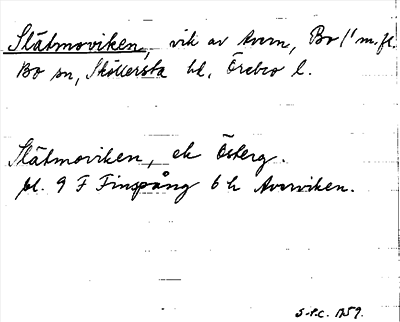 Slätmoviken, vik av Avern, Bo 1/1 m.fl.
Bo sn, Sköllersta hd, Örebro l.
Slätmoviken, ek Österg.
bl. 9 F Finspång 6 h Averviken.
S.P.C. 1959.